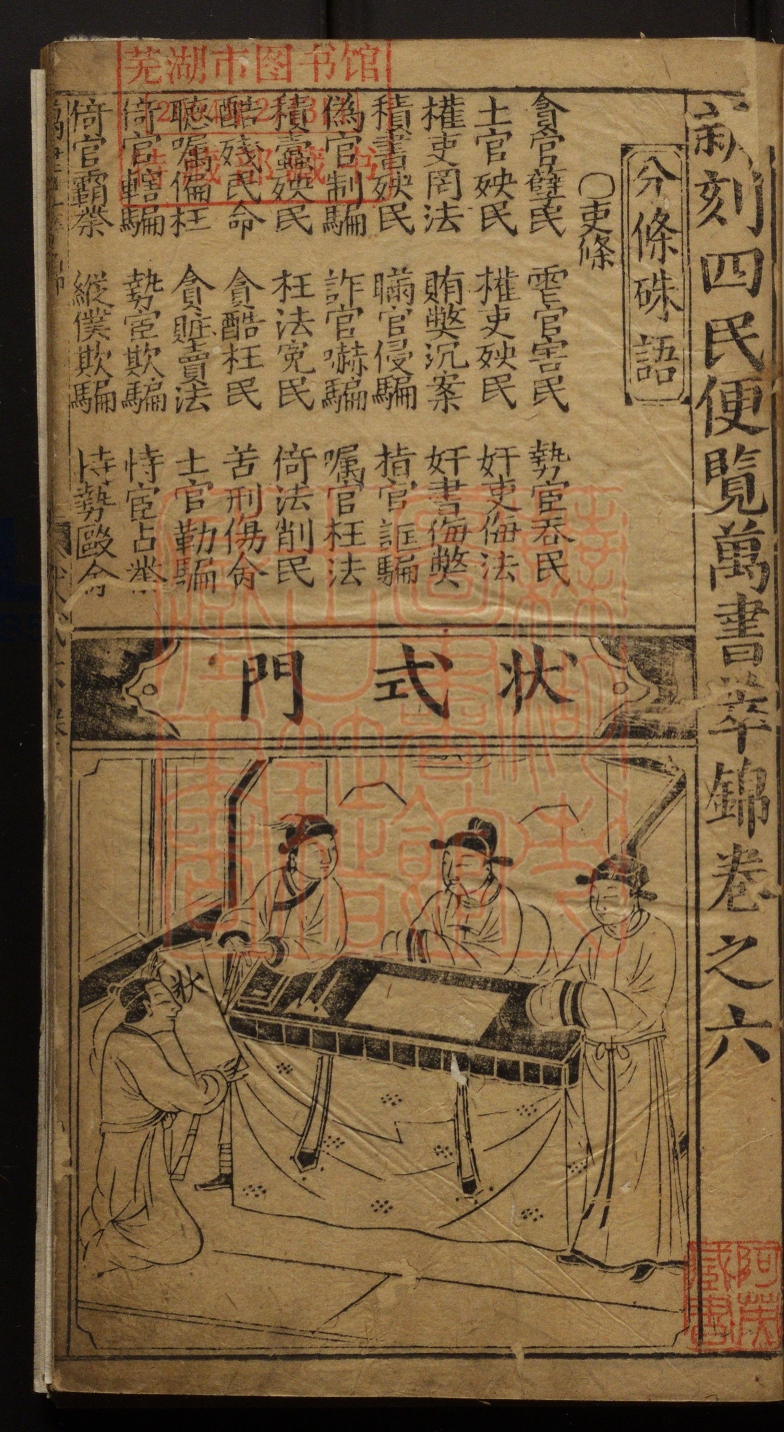 新刻四民便覧萬書萃錦卷之六
分條硃語
○吏條
貪官孽民 虐官害民 勢宦吞民
土官殃民 權吏殃民 奸吏侮法
權吏罔法 賄獘沉案 奸書侮獘
積書殃民 瞞官侵騙 指官誆騙
偽官制騙 詐官嚇騙 嘱官枉法
積蠹殃民 枉法冤民 倚法削民
酷殘民命 貪酷枉民 苦刑傷命
聽嘱偏枉 貪賍賣法 土官勒騙
倚官轄騙 勢宦欺騙 恃宦占業
倚官霸業 縱僕欺騙 恃勢毆命
状式門
状
芜湖市图书馆
特藏部藏书
阿英藏書